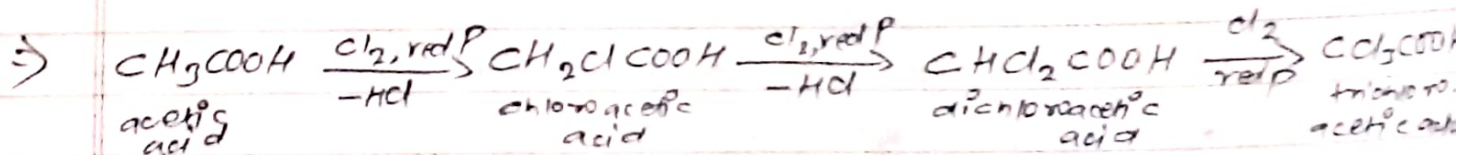 ⇒ CH₃COOH $\xrightarrow[-HCl]{Cl_2, red P}$ CH₂ClCOOH $\xrightarrow[-HCl]{Cl_2, red P}$ CHCl₂COOH $\xrightarrow[red P]{Cl_2}$ CCl₃COOH
acetic chloroacetic dichloroacetic trichloro
acid acid acid acetic acid